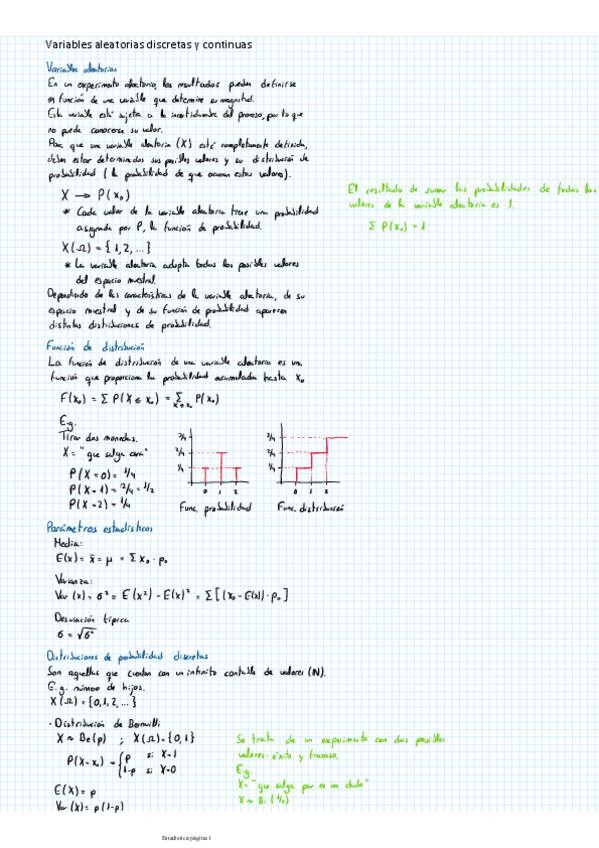 Variables aleatorias discretas y continuas
Variables aleatorias
En un experimento aleatorio, los resultados pueden definirse
en función de una variable que determine su magnitud.
Esta variable está sujeta a la incertidumbre del proceso, por lo que
no puede conocerse su valor.
Para que una variable aleatoria (X) esté completamente definida,
deben estar determinados sus posibles valores y su distribución de
probabilidad (la probabilidad de que ocurran estos valores).
X → P(x₀)
* Cada valor de la variable aleatoria tiene una probabilidad
asignada por P, la función de probabilidad.
X(Ω) = {1, 2, ...}
* La variable aleatoria adopta todos los posibles valores
del espacio muestral.
Dependiendo de las características de la variable aleatoria, de su
espacio muestral y de su función de probabilidad aparecen
distintas distribuciones de probabilidad.
El resultado de sumar las probabilidades de todos los
valores de la variable aleatoria es 1.
Σ P(x₀) = 1
Función de distribución
La función de distribución de una variable aleatoria es una
función que proporciona la probabilidad acumulada hasta x₀
F(x₀) = Σ P(X ≤ x₀) = Σ P(x₀)
E.g.
Tirar dos monedas.
X = "que salga cara"
P(X=0) = 1/4
P(X=1) = 2/4 = 1/2
P(X=2) = 1/4
3/4
2/4
1/4
0 1 2
Func. probabilidad
3/4
2/4
1/4
0 1 2
Func. distribución
Parámetros estadísticos
Media:
E(x) = x̄ = μ = Σ x₀ · p₀
Varianza:
Var (x) = σ² = E(x²) - E(x)² = Σ[(x₀ - E(x)) · p₀]
Desviación típica
σ = √σ²
Distribuciones de probabilidad discretas
Son aquellas que cuentan con un infinito contable de valores (N).
E.g. número de hijos.
X(Ω) = {0, 1, 2, ...}
· Distribución de Bernuilli
X ~ Be(p) ; X(Ω) = {0, 1}
P(X=x₀) = { p si X=1
1-p si X=0
E(X) = p
Var (X) = p(1-p)
Se trata de un experimento con dos posibles
valores: éxito y fracaso.
E.g.
X = "que salga par en un dado"
X ~ Be (1/2)
Estadística página 1